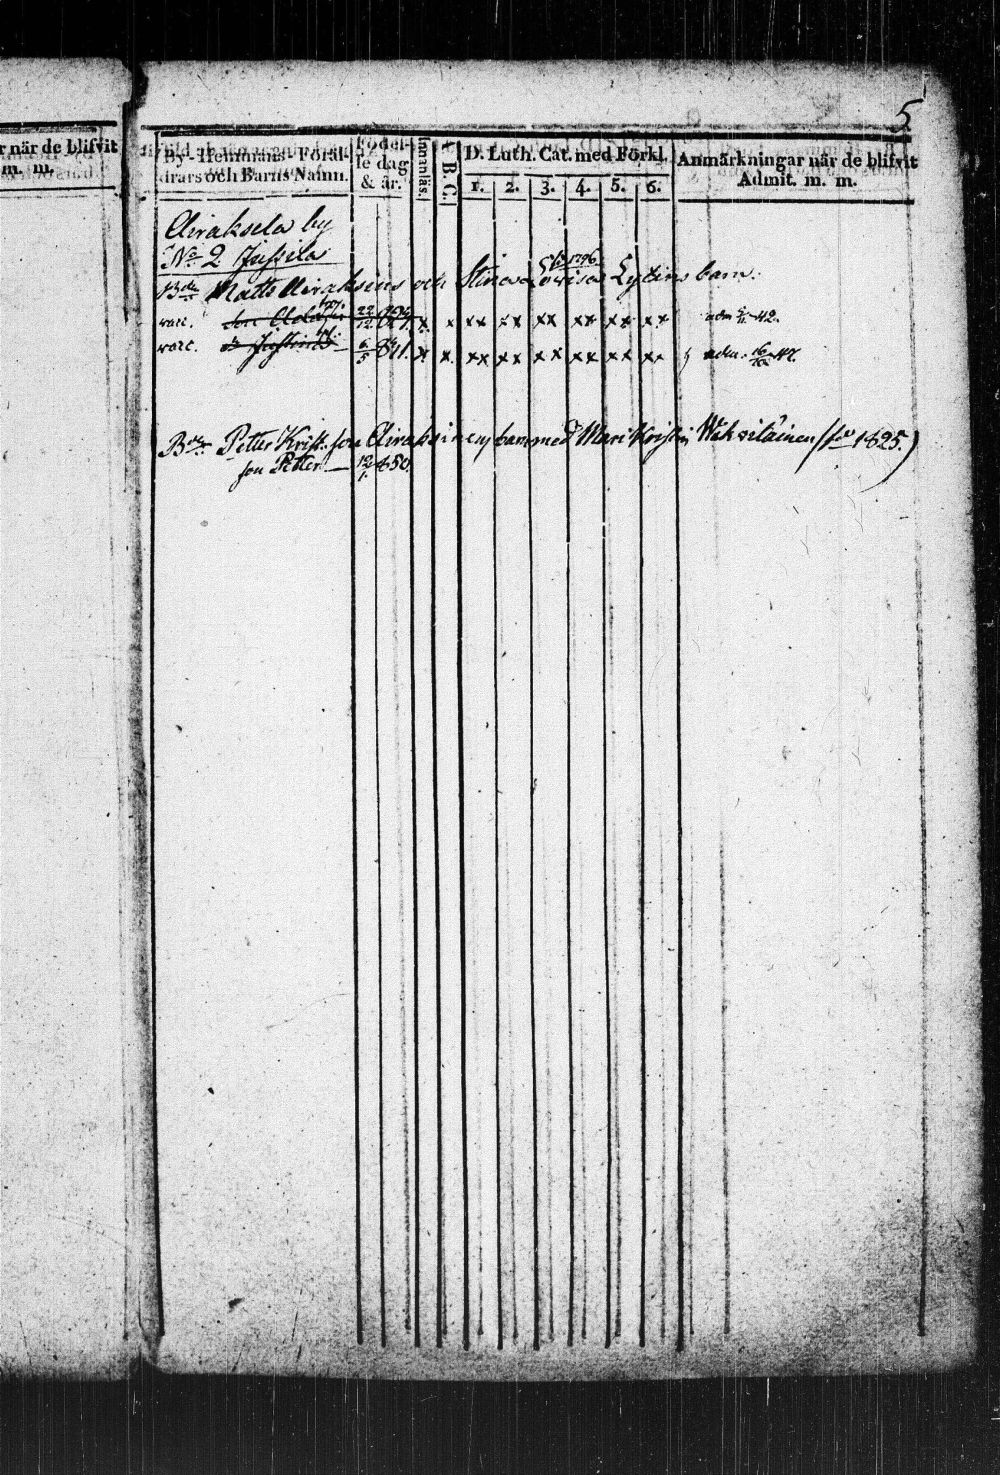 5.
r när de blifvit
m. m.
By- Hemmans- Föräl-
drars och Barns Namn.
Födel-
se dag
& år.
Innanläs.
A B C.
D. Luth. Cat. med Förkl.
1. 2. 3. 4. 5. 6.
Anmärkningar när de blifvit
Admit. m. m.
Airaksela by
No 2 Jussila
1796
Bde Matts Airaksins och Stina Lowisa Lytins barn.
vacc. son Adam 22/12 x x xx xx xx xx xx xx adm 42.
vacc. 6/5 841. x x xx xx xx xx xx xx adm. 47.
Petter Krist. son Airaksinens barn med Mari Kristin (fö 1825.)
son Petter 12/1. 850.